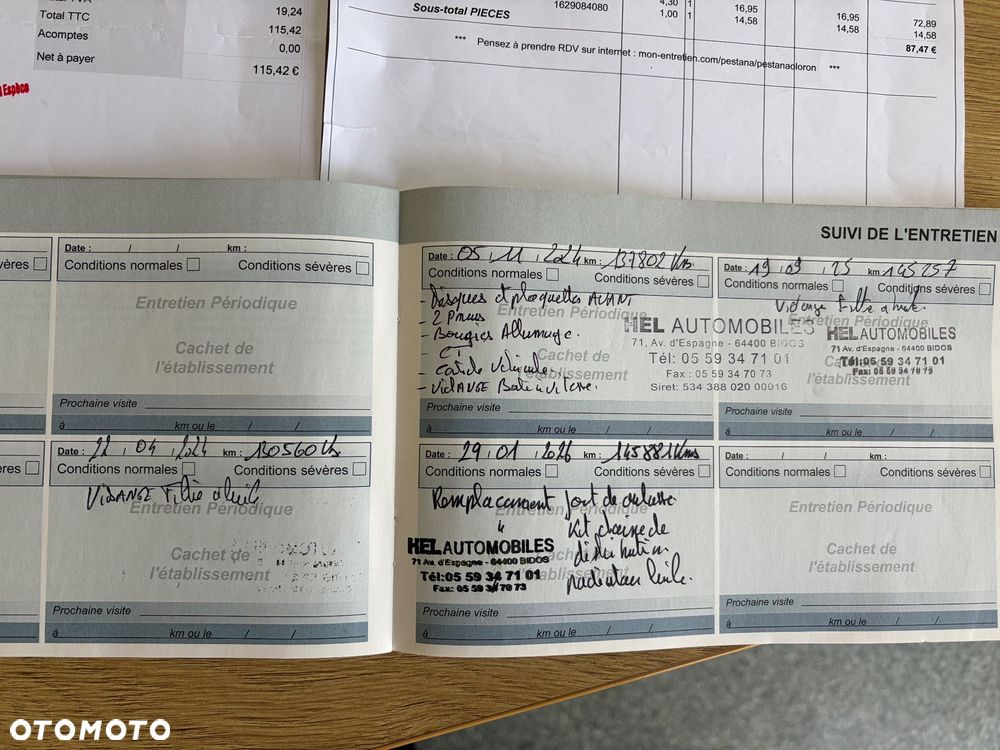 TVA
19,24
Total TTC
115,42
Acomptes
0,00
Net à payer
115,42 €
Espèce
Sous-total PIECES
1629084080
4,30 1
16,95
16,95
72,89
1,00 1
14,58
14,58
14,58
87,47 €
*** Pensez à prendre RDV sur internet : mon-entretien.com/pestana/pestanaoloron ***
SUIVI DE L'ENTRETIEN
vères
Date : / / km :
Conditions normales Conditions sévères
Entretien Périodique
Cachet de
l'établissement
Prochaine visite
à km ou le / /
Date : 05 , 11 , 2024 km : 137802 Kms
Conditions normales Conditions sévères
- Disques et plaquettes AVANT
- 2 Pneus
Entretien Périodique
- Bougies Allumage.
- CT
- Carte Véhicule.
- VIDANGE Boite a vitesse.
HEL AUTOMOBILES
71, Av. d'Espagne - 64400 BIDOS
Tél : 05 59 34 71 01
Fax : 05 59 34 70 73
Siret: 534 388 020 00016
Cachet de
l'établissement
Prochaine visite
à km ou le / /
Date : 19 , 09 , 25 km 145257
Conditions normales Conditions sévères
Vidange Filtre a huile.
Entretien Périodique
HEL AUTOMOBILES
71 Av. d'Espagne - 64400 BIDOS
Tél:05 59 34 71 01
Fax: 05 59 34 70 73
l'établissement
Prochaine visite
à km ou le / /
ères
Date : 22 , 04 , 2024 km : 130560 Ks
Conditions normales Conditions sévères
VIDANGE Filtre a huile
Entretien Périodique
Cachet de
l'établissement
Prochaine visite
à km ou le / /
Date : 29 , 01 , 2026 km : 145881 Kms
Conditions normales Conditions sévères
Remplacement joint de culasse
Entretien Périodique
" Kit chaine de
distribution
radiateur huile.
HEL AUTOMOBILES
71 Av. d'Espagne - 64400 BIDOS
Tél:05 59 34 71 01
Fax: 05 59 34 70 73
l'établissement
Prochaine visite
à km ou le / /
Date : / / km :
Conditions normales Conditions sévères
Entretien Périodique
Cachet de
l'établissement
Prochaine visite
à km ou le / /
OTOMOTO